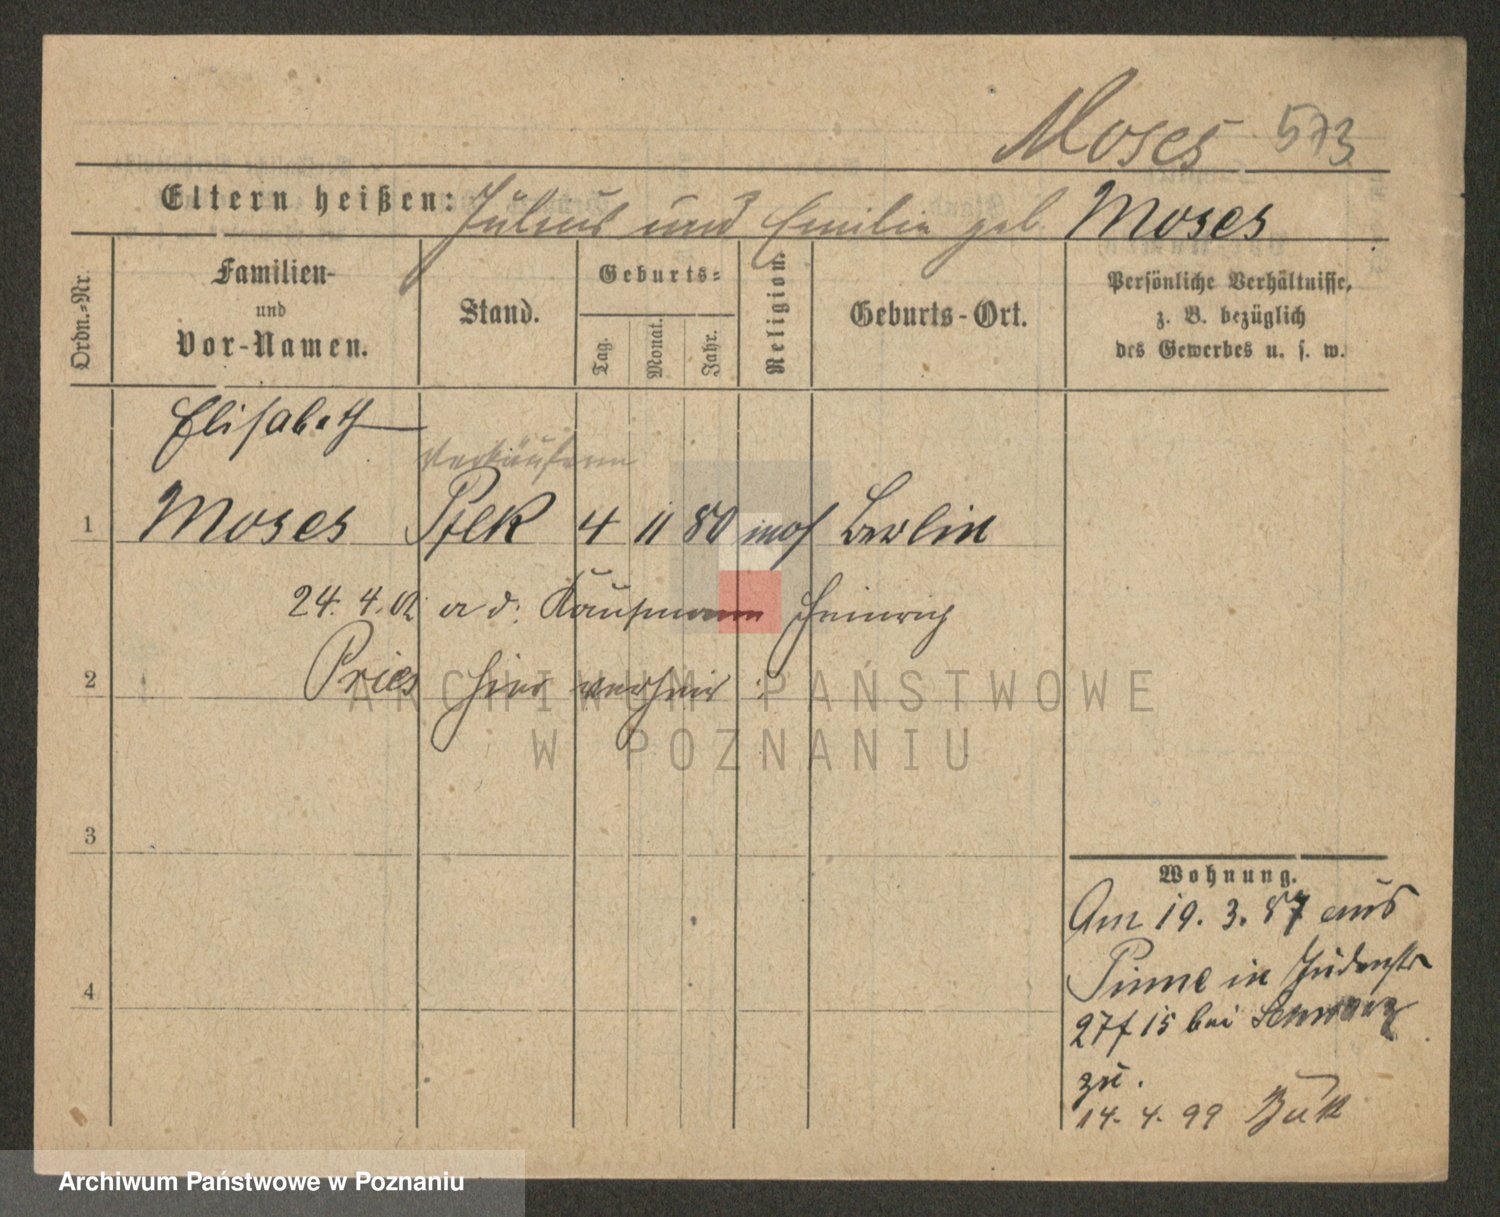 Moses 573
Eltern heißen: Julius und Emilie geb. Moses
Ordn.-Nr.
Familien-
und
Vor-Namen.
Stand.
Geburts-
Tag.
Monat.
Jahr.
Religion.
Geburts-Ort.
Persönliche Verhältnisse,
z. B. bezüglich
des Gewerbes u. s. w.
Elisabeth
Verkäuferin
1 Moses Pflk 4 11 80 mos Berlin
24. 4. 02 a d. Kaufmann Heinrich
2 Pries hier verheir.
ARCHIWUM PAŃSTWOWE
W POZNANIU
3
4
Wohnung.
Am 19. 3. 87 aus
Pinne in Judenstr
27/15 bei
zu.
14. 4. 99 Buk
Archiwum Państwowe w Poznaniu